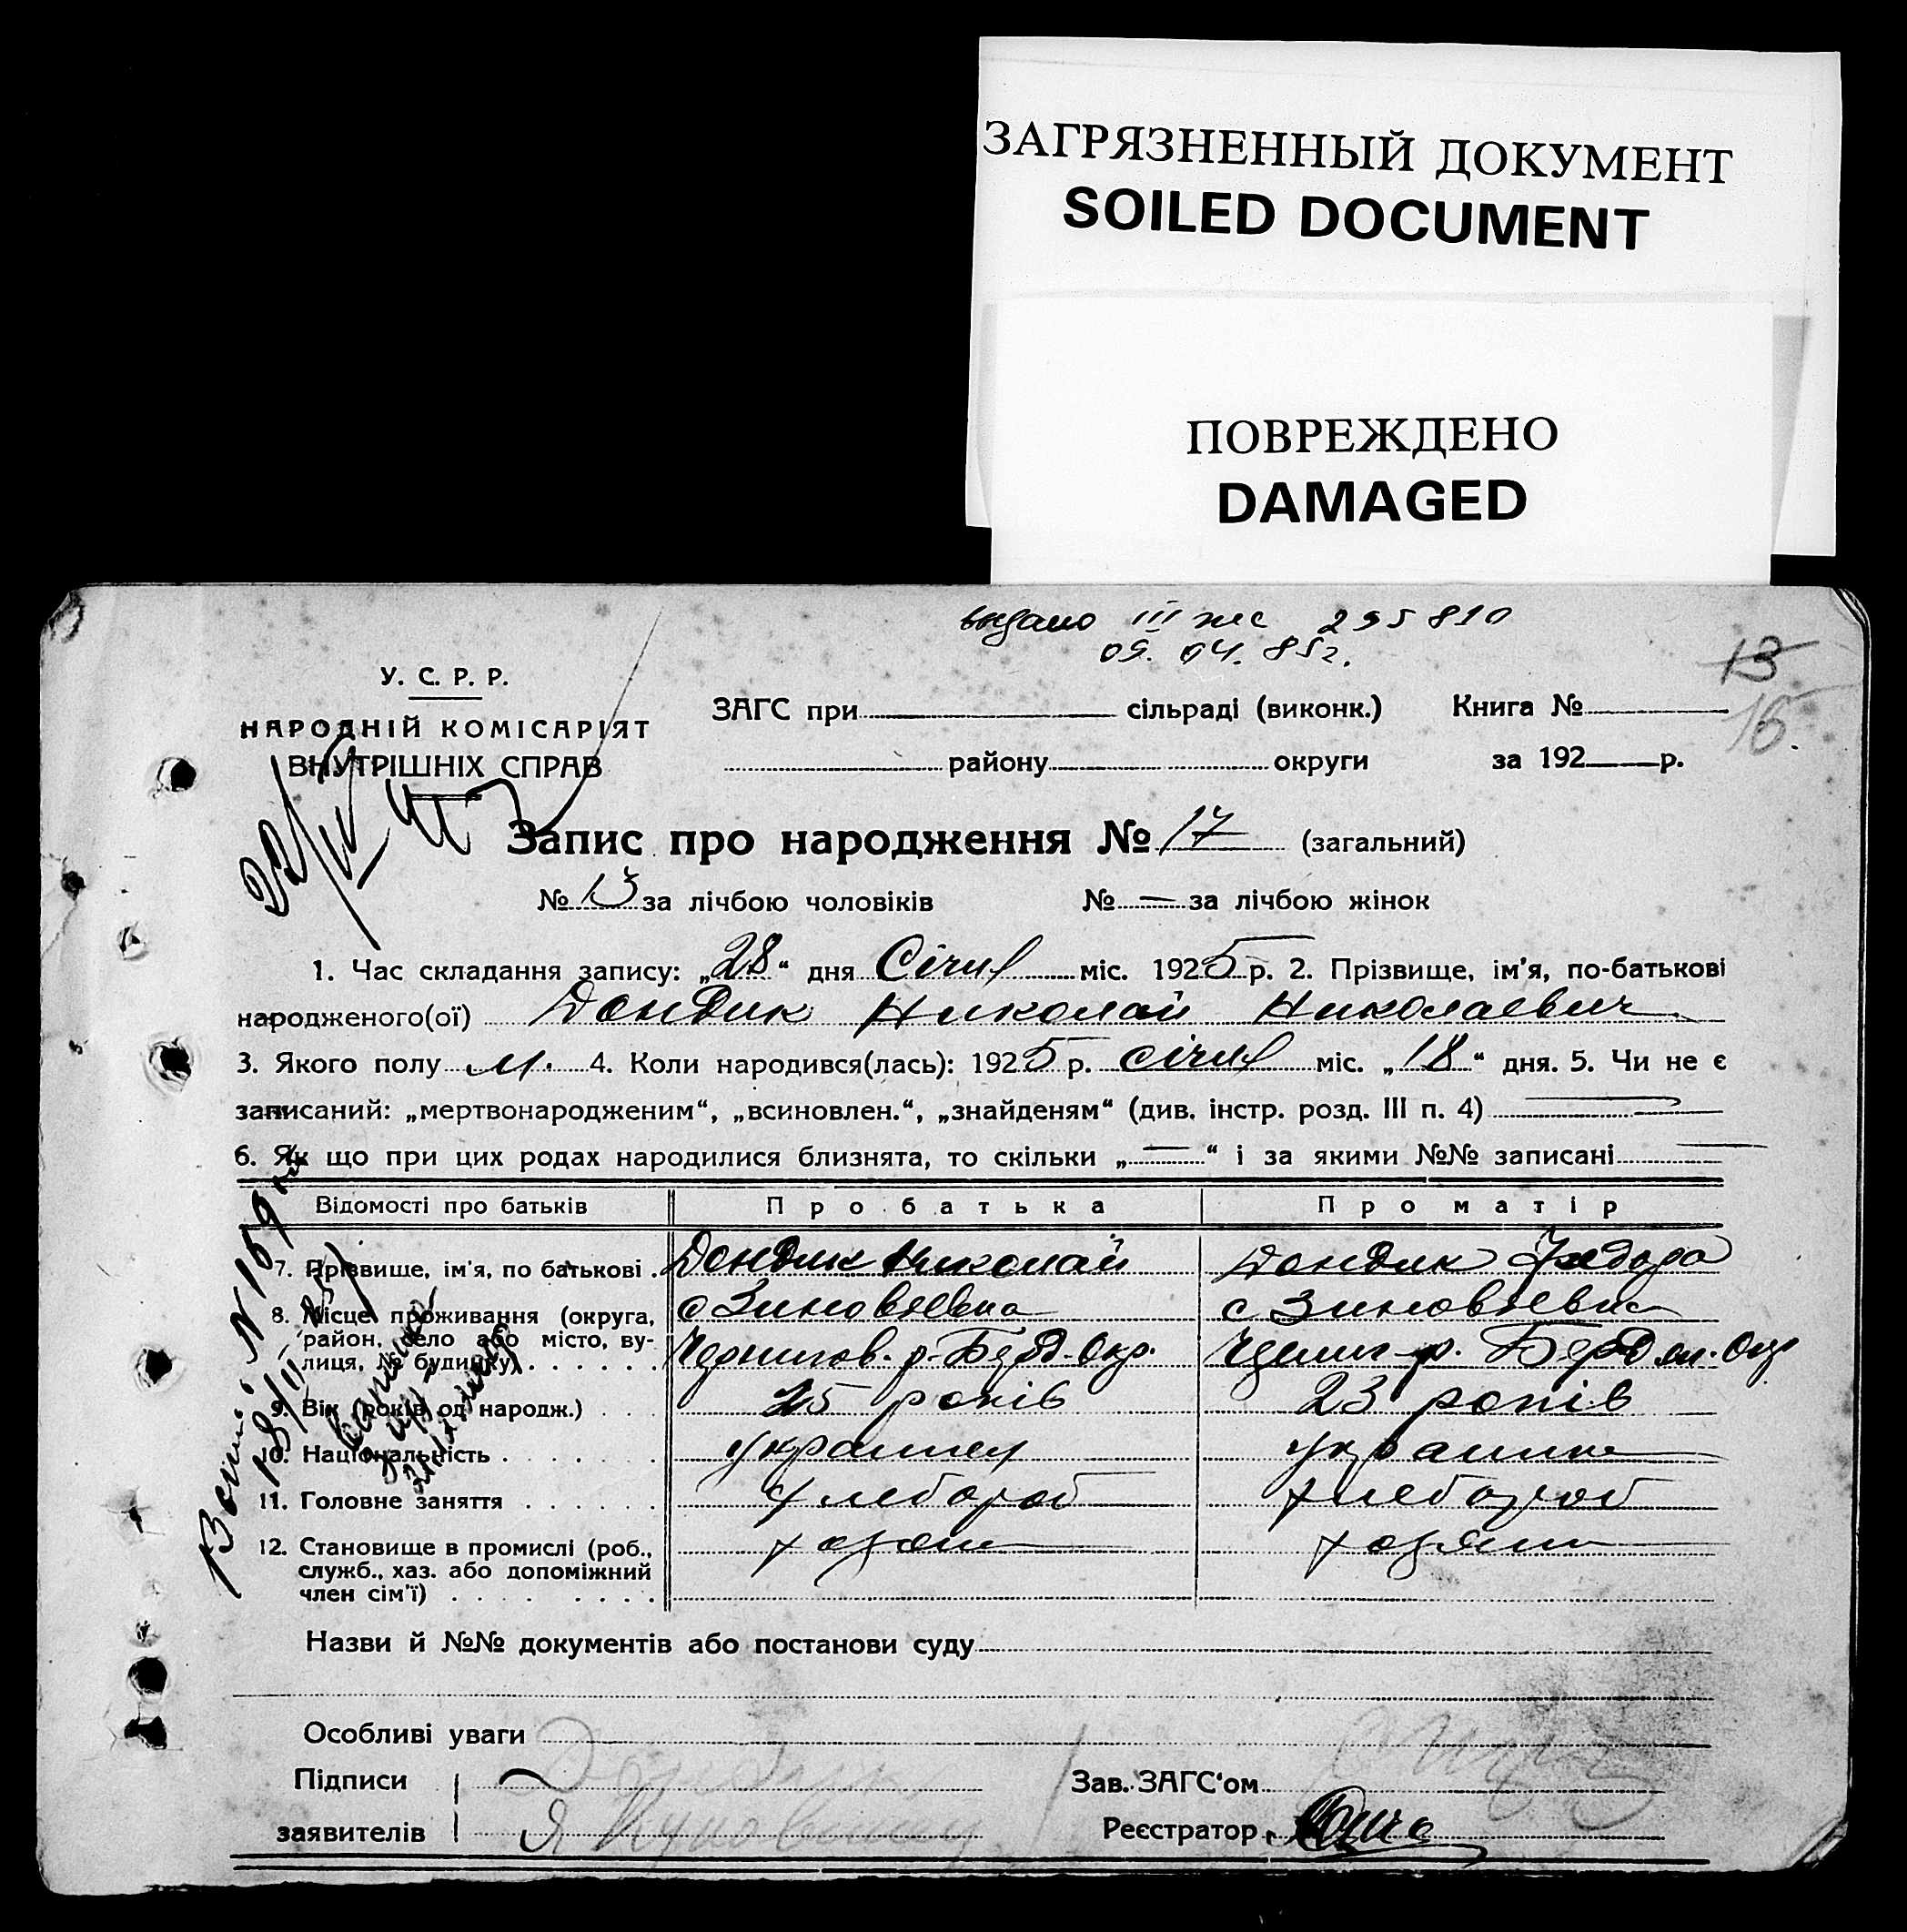 ЗАГРЯЗНЕННЫЙ ДОКУМЕНТ
SOILED DOCUMENT
ПОВРЕЖДЕНО
DAMAGED
выдано III жс 295810
09. 04. 85г.
13
16.
У. С. Р. Р.
НАРОДНІЙ КОМІСАРІЯТ
ВНУТРІШНІХ СПРАВ
ЗАГС при сільраді (виконк.) Книга №
району округи за 192 р.
Запис про народження № 17 (загальний)
№ 13 за лічбою чоловіків № — за лічбою жінок
1. Час складання запису: „28“ дня Січня міс. 1925 р. 2. Прізвище, ім'я, по-батькові
народженого(ої) Дондик Николай Николаевич
3. Якого полу м. 4. Коли народився(лась): 1925 р. січня міс. „18“ дня. 5. Чи не є
записаний: „мертвонародженим“, „всиновлен.“, „знайденям“ (див. інстр. розд. III п. 4) —
6. Як що при цих родах народилися близнята, то скільки „—“ і за якими №№ записані —
Відомості про батьків Про батька Про матір
7. Прізвище, ім'я, по батькові . Дондик Николай Дондик Федора
8. Місце проживання (округа, район, село або місто, вулиця, № будинку) . . . . . .
с Зиновьевка с Зиновьевка
Чернигов. р. Берд. Окр.
9. Вік (років од народж.) . . . 25 років 23 років
10. Національність . . . . . . . украинец украинка
11. Головне заняття . . . . . . хлебороб хлебороб
12. Становище в промислі (роб., служб., хаз. або допоміжний член сім'ї) . . . . . . .
хозяин
Назви й №№ документів або постанови суду
Особливі уваги
Підписи Дондик Зав. ЗАГС'ом
заявителів Реєстратор